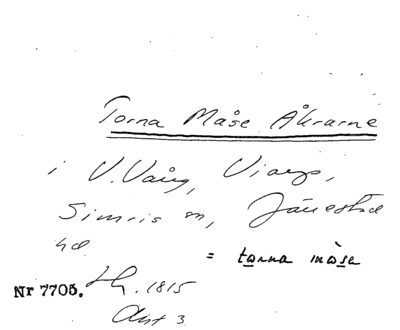 Torna Måse Åkrarne
i V. Vång, Viarp,
Simris sn, Järrestads
hd
= torna måsa
Nr 7705. Lh. 1815
Akt 3